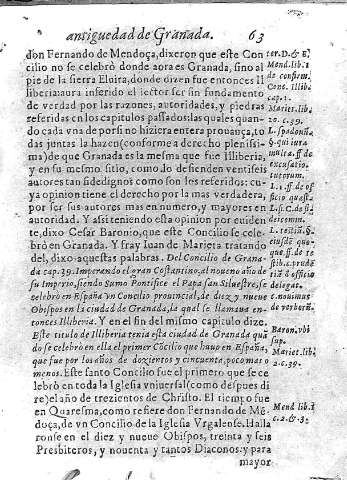 antiguedad de Granada. 63
don Fernando de Mendoça, dixeron que este Con
cilio no se celebrò donde aora es Granada, sino al
pie de la sierra Eluira, donde dizen fue entonces Il
liberia: aura inferido el lector ser sin fundamento
de verdad por las razones, autoridades, y piedras
referidas en los capitulos passados: las quales quan-
do cada vna de por si no hiziera entera prouança, to
das juntas la hazen (conforme a derecho plenissi-
ma) de que Granada es la mesma que fue Illiberia,
y en su mesmo sitio, como lo defienden ventiseis
autores tan fidedignos como son los referidos: cu-
ya opinion tiene el derecho por la mas verdadera,
por ser sus autores mas en numero, y mayores en
autoridad. Y assi teniendo esta opinion por euiden
te, dixo Cesar Baronio, que este Concilio se cele-
brò en Granada. Y fray Iuan de Marieta tratando
del, dixo aquestas palabras. Del Concilio de Grana-
da cap. 39. Imperando el gran Costantino, al noueno año de
su Imperio, siendo Sumo Pontifice el Papa san Siluestre, se
celebrò en España vn Concilio prouincial, de diez y nueue
Obispos en la ciudad de Granada, la qual se llamaua en-
tonces Illiberia. Y en el fin del mismo capitulo dize.
Este titulo de Illiberia tenia esta ciudad de Granada quã
do se celebrò en ella el primer Cõcilio que huuo en España,
que fue por los años de dozientos y cincuenta, poco mas o
menos. Este santo Concilio fue el primero que se ce
lebrò en toda la Iglesia vniuersal (como despues di
re) el año de trezientos de Christo. El tiempo fue
en Quaresma, como refiere don Fernando de Mẽ
doça, de vn Concilio de la Iglesia Vrgalense. Halla
ronse en el diez y nueue Obispos, treinta y seis
Presbiteros, y nouenta y tantos Diaconos: y para
mayor
ter. D. & E.
Mend. lib. 1
de confirm.
Conc. Illib.
cap. 1.
Mariet. lib.
20. c. 39.
excusatio.
tutorum.
L. 1. ff. de of
delegat.
de verbor.
Baron. vbi
sup.
Mariet. lib.
2. c. 39.
Mend lib. 1
c. 2. & 3.